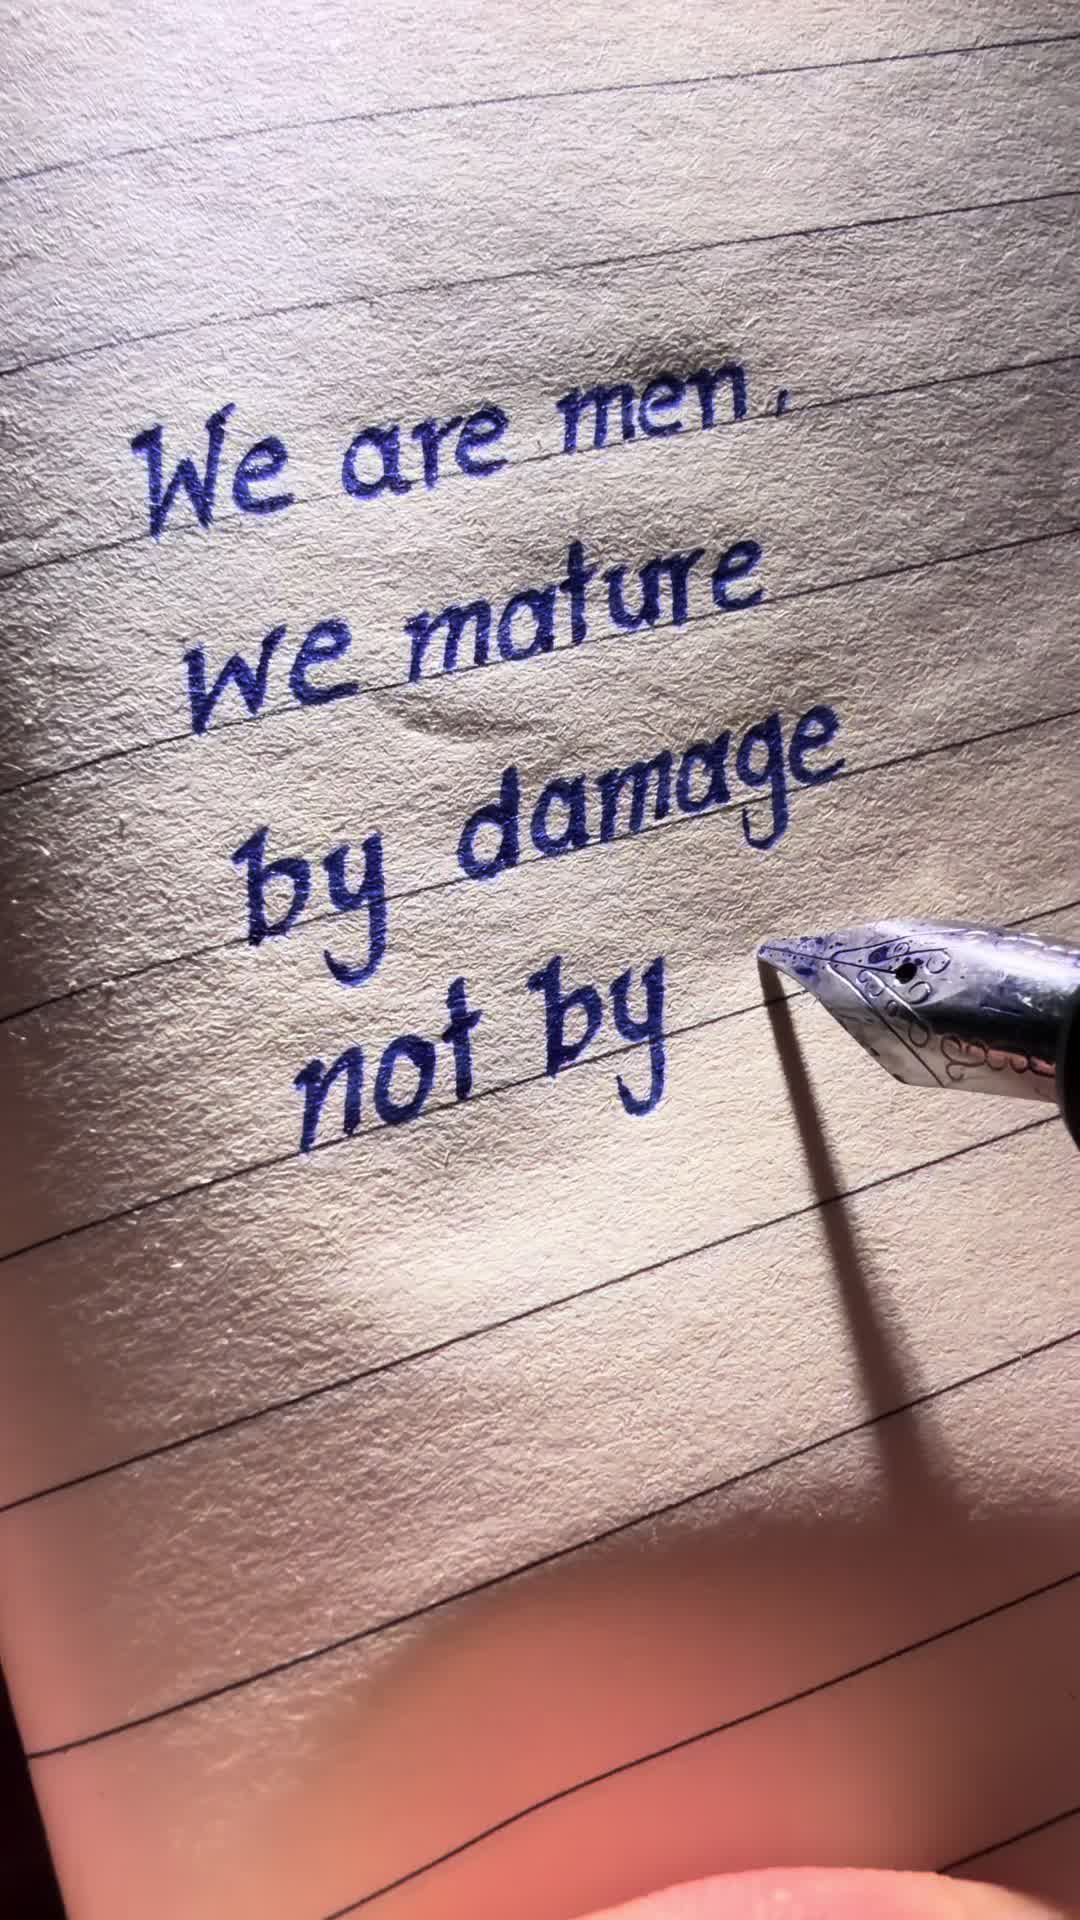 We are men,
We mature
by damage
not by